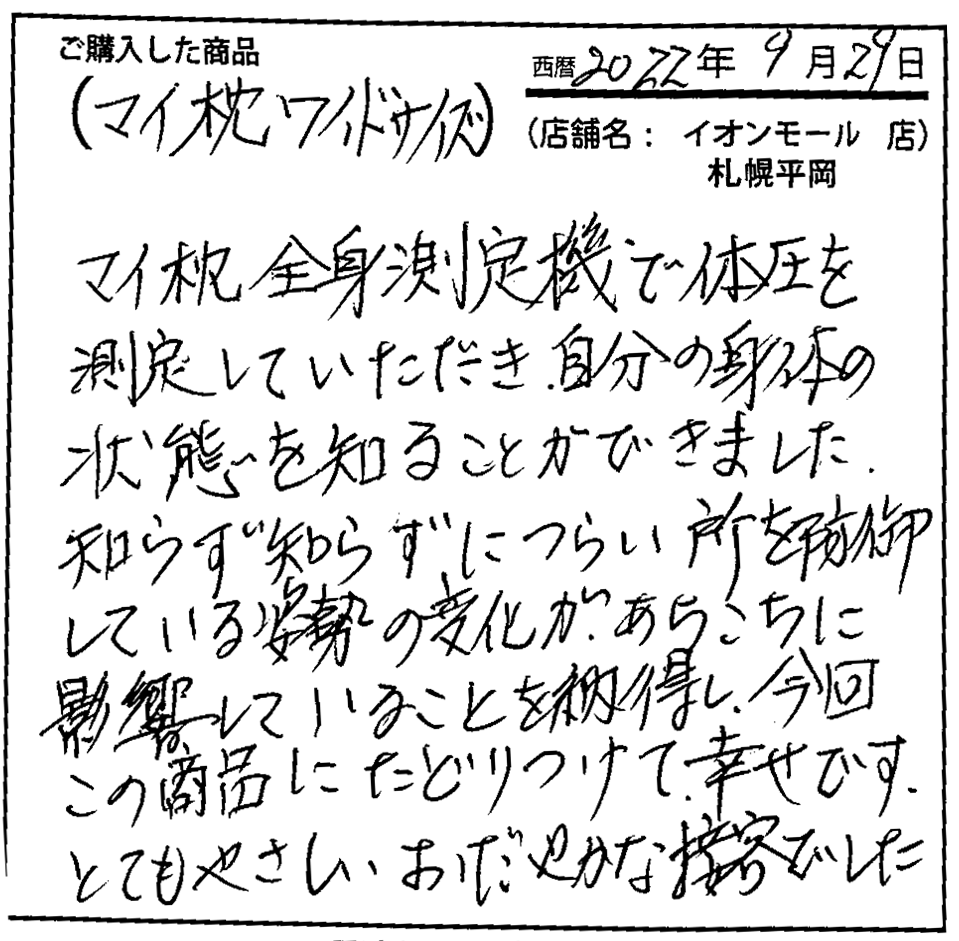 ご購入した商品
西暦2022年 9月29日
(マイ枕ワイドサイズ)
(店舗名： イオンモール 店)
札幌平岡
マイ枕 全身測定機で体圧を
測定していただき、自分の身体の
状態を知ることができました。
知らず知らずにつらい所を防御
している姿勢の変化が、あちこちに
影響していることを納得し、今回
この商品にたどりつけて、幸せです。
とてもやさしい、おだやかな接客でした